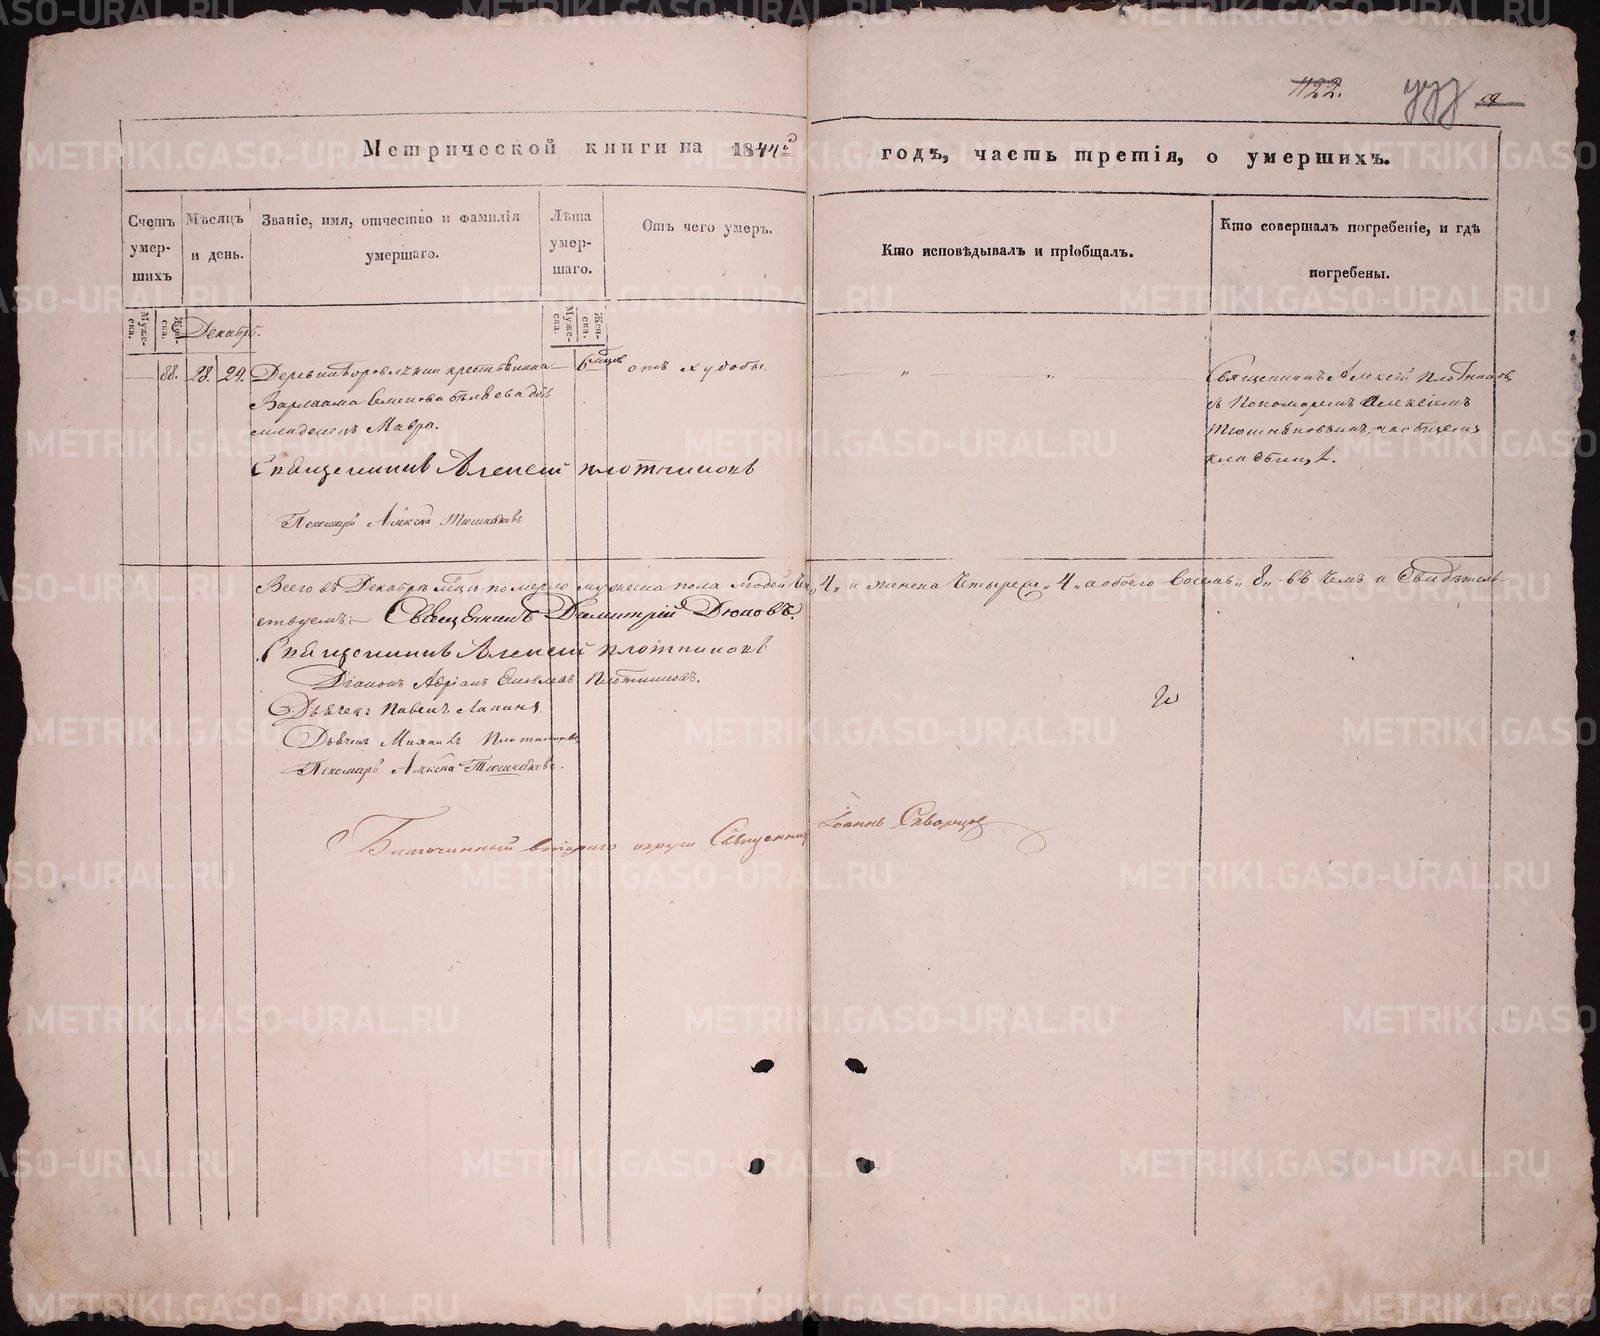 1122.
Метрической книги на 1844й
годъ, часть третія, о умершихъ.
Счетъ умер- шихъ
Мѣсяцъ и день.
Званіе, имя, отчество и фамилія умершаго.
Лѣта умер- шаго.
Отъ чего умеръ.
Кто исповѣдывалъ и пріобщалъ.
Кто совершалъ погребеніе, и гдѣ погребены.
Муже- ска.
Жен- ска.
Декабрь.
Муже- ска.
Жен- ска.
88. 28. 29. Деревни крестьянина 6 мцовъ отъ худобы. " "
Варлаама Семенова Бѣляева дочь
младенецъ Мавра.
Священникъ Алексѣй Плотниковъ
съ Пономаремъ Алексіемъ
Тюшняковымъ, на общемъ
кладбищѣ.
Священникъ Алексей Плотниковъ
Пономарь Алексей Тюшняковъ
Всего въ Декабрѣ мцѣ померло мужеска пола людей 4" и женска Четыре " 4 " а обоего Восемь " 8 " въ чемъ и Свидѣтель-
ствуемъ: Священникъ Димитрій Дюковъ.
Священникъ Алексей Плотниковъ
Діаконъ Адріанъ Плотниковъ.
Дьячекъ Павелъ Лапинъ.
Дьячекъ Михаилъ Плотниковъ
Пономарь Алексей Тюшняковъ.
Благочинный втораго округа Священникъ Іоаннъ Скворцовъ
METRIKI.GASO-URAL.RU